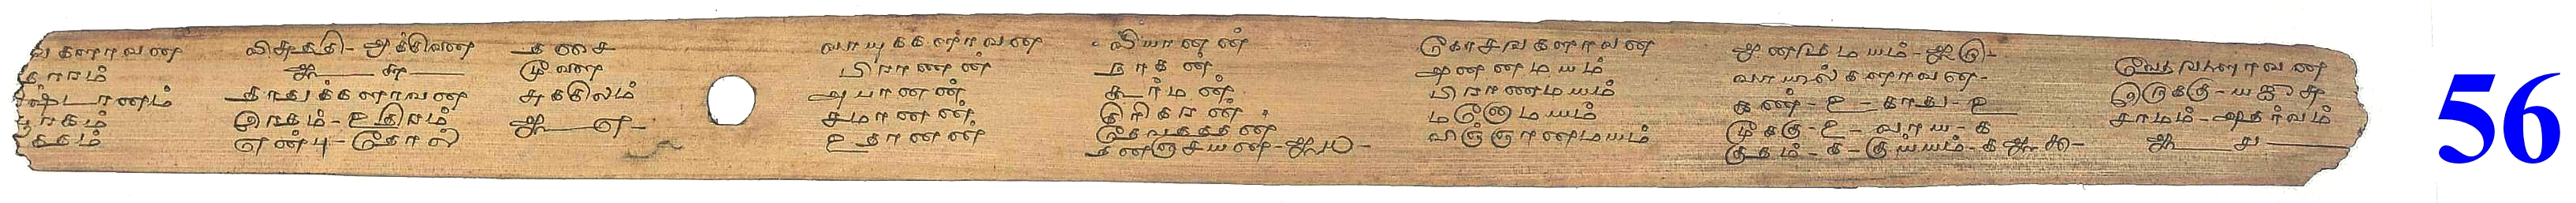 களாவன
தாரம்
ஷ்டானம்
ரகம்
கதம்
விசுத்தி - ஆக்கினை
ஆ — ௬ —
தாதுக்களாவன
இரசம் - உதிரம்
எண்பு - தோல்
தசை
மூளை
சுக்கிலம்
ஆ — ௭ -
வாயுக்களாவன
பிராணன்
அபானன்
சமானன்
உதானன்
வியானன்
நாகன்
கூர்மன்
கிரிகரன்
தேவதத்தன்
தனஞ்செயன் - ஆ ௰ -
கோசங்களாவன
அன்னமயம்
பிராணமயம்
மனோமயம்
விஞ்ஞானமயம்
ஆனந்தமயம் - ஆ ௫ -
வாயில்களாவன -
கண் - ௨ - காது - ௨
மூக்கு - ௨ - வாய் - ௧
குதம் - ௧ - குய்யம் - ௧ ஆ ௯ -
வேதங்களாவன
இருக்கு - யசுர்
சாமம் - அதர்வம்
ஆ — ௪ —
56